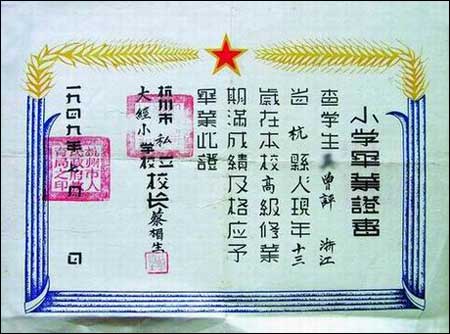 小学畢業證書
查学生 曾評 浙江
省杭縣人現年十三
歲在本校高級修業
期滿成績及格应予
畢業此證
杭州市私立
大經小学校 校长 蔡相生
一九四九年 月 日
杭州市人民政府教育局之印